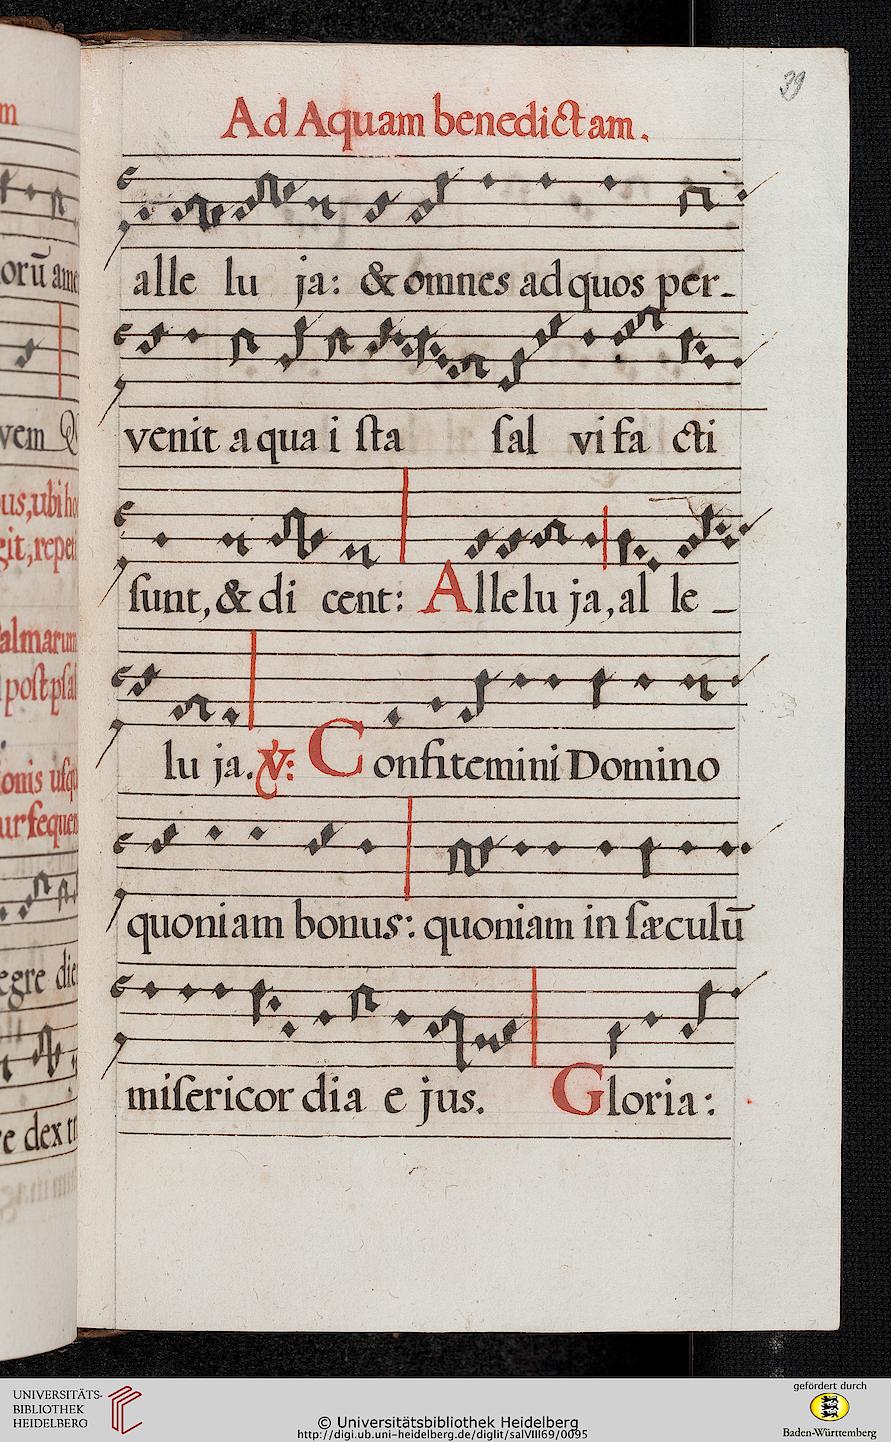 39
Ad Aquam benedictam.
alle lu ja: & omnes ad quos per-
venit a qua i ſta ſal vi fa cti
ſunt, & di cent: Allelu ja, al le -
lu ja. ℣: Confitemini Domino
quoniam bonus: quoniam in ſæculū
miſericor dia e jus. Gloria:
m
orū ame
vem
us, ubi ho
git, repet
almarum
poſt pſal
ionis uſq
ur ſequen
egre die
e dex tr
UNIVERSITÄTS-
BIBLIOTHEK
HEIDELBERG
© Universitätsbibliothek Heidelberg
http://digi.ub.uni-heidelberg.de/diglit/salVIII69/0095
gefördert durch
Baden-Württemberg